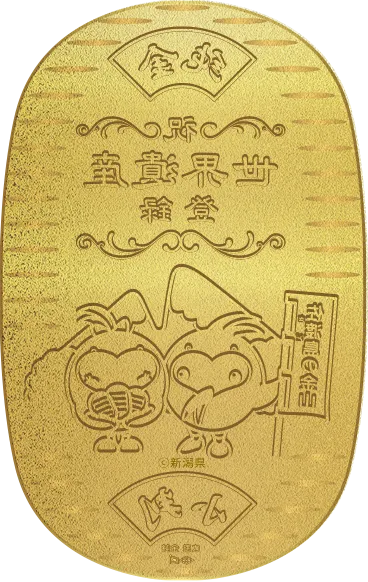 純金
祝
世界遺産
登録
佐渡島の金山
©新潟県
小判